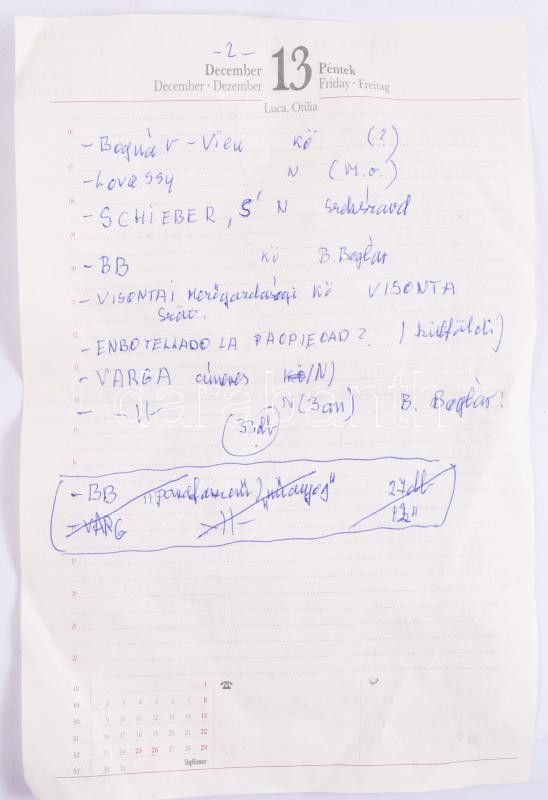 - 2 -
December 13 Péntek
December · Dezember Friday · Freitag
Luca, Otília
- Bognár - Vieu kö (?)
- Lovassy N (M.o.)
- SCHIEBER, S' N
- BB kö B. Boglár
- VISONTAI Mezőgazdasági kö VISONTA
Szöv.
- ENBOTELLADO LA PROPIEDAD? (külföldi)
- VARGA címeres /N)
- -||- N (3an) B. Boglár?
33db
- BB 27db
- VARG -||- 12"
06
07
08
09
10
11
12
13
14
15
19
20
21
22
48 1
49 2 3 4 5 6 7 8
50 9 10 11 12 13 14 15
51 16 17 18 19 20 21 22
52 23 24 25 26 27 28 29
53 30 31
darabanth